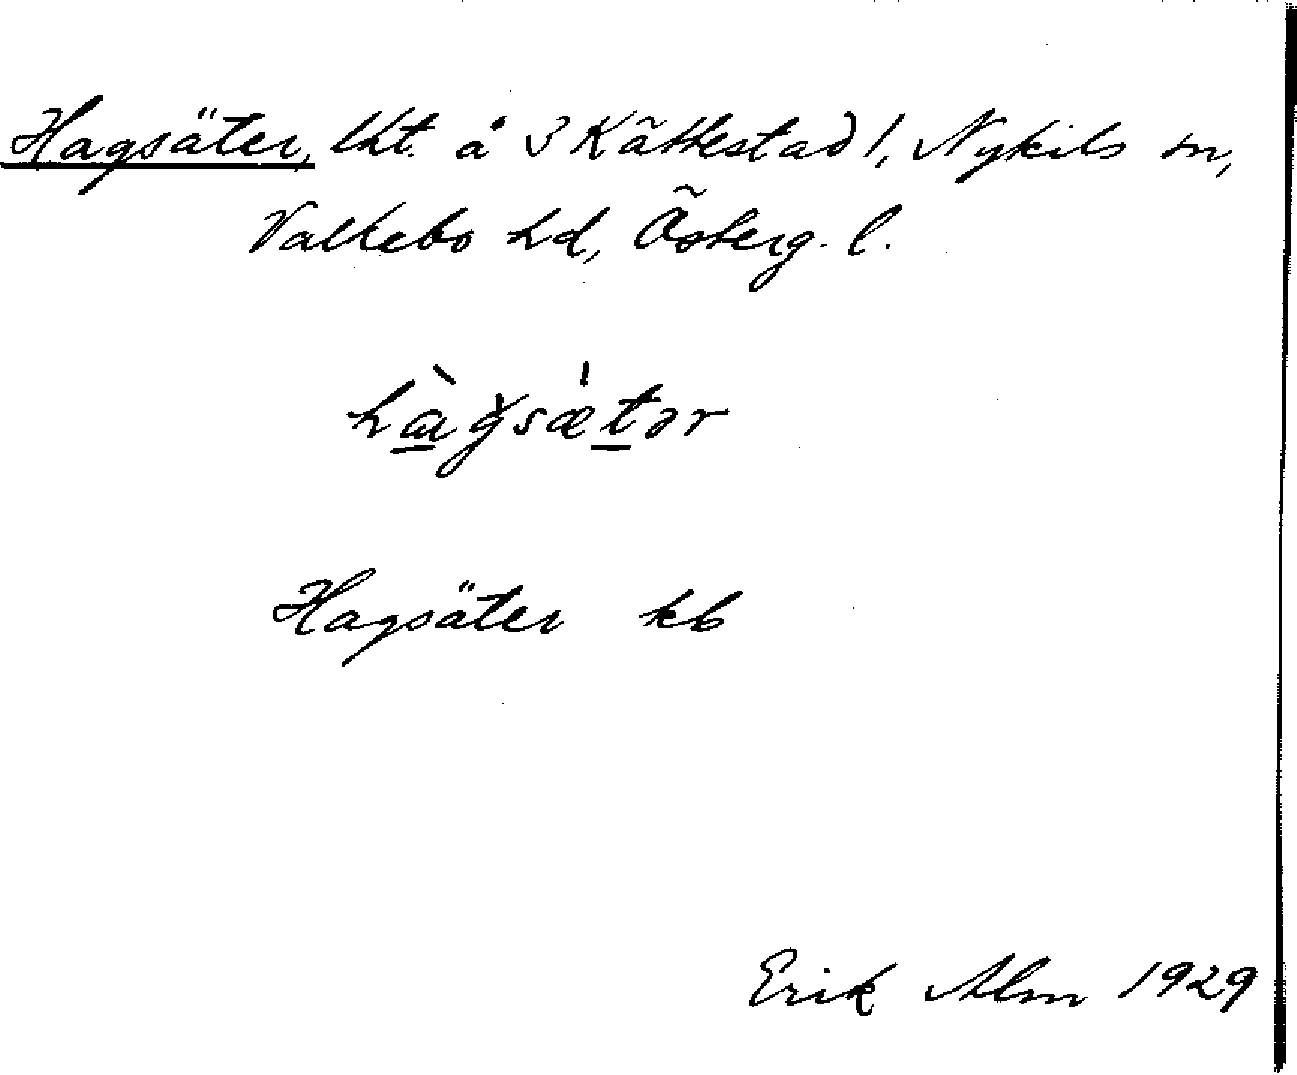 Hagsäter, lht. å 3 Kättestad 1, Nykils sn,
Valkebo hd, Österg. l.
hàgsæ̍tər
Hagsäter kb
Erik Alm 1929